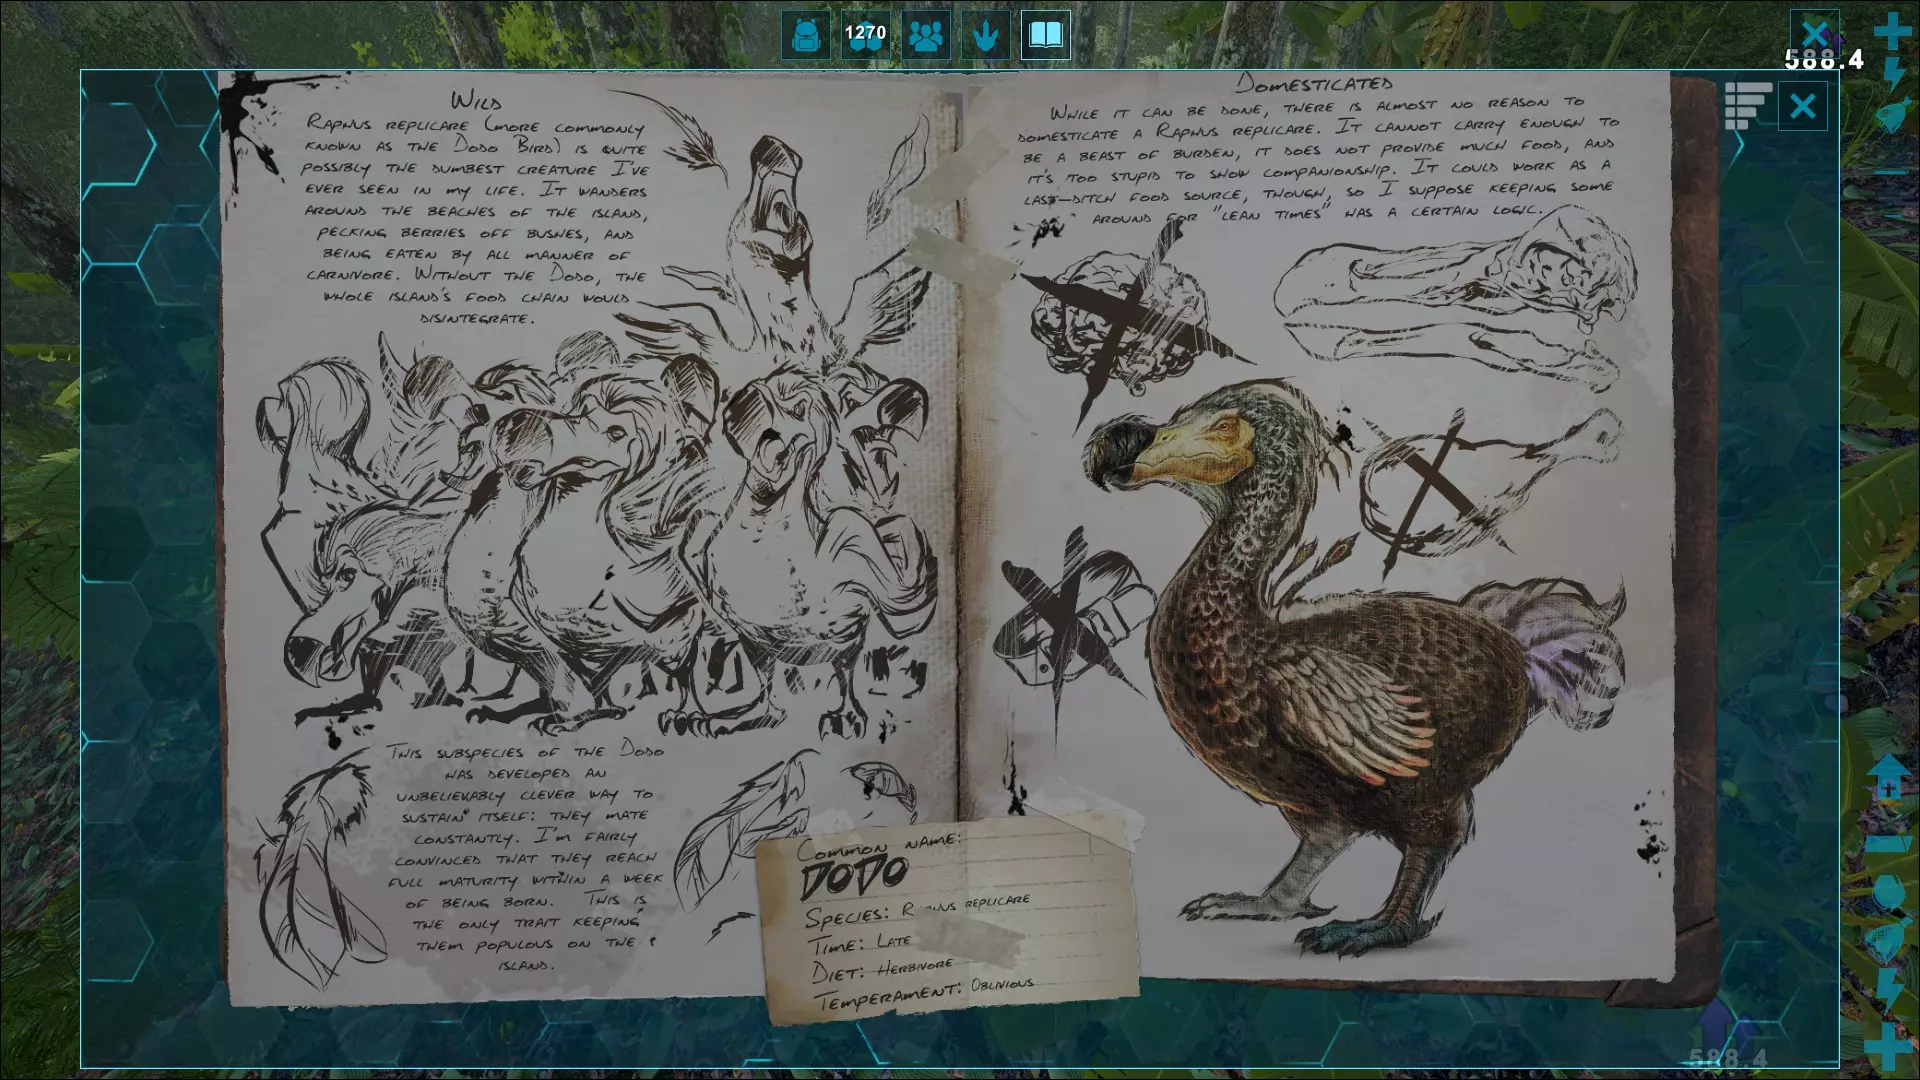 1270
588.4
Wild
Raphus replicare (more commonly
known as the Dodo Bird) is quite
possibly the dumbest creature I've
ever seen in my life. It wanders
around the beaches of the island,
pecking berries off bushes, and
being eaten by all manner of
carnivore. Without the Dodo, the
whole island's food chain would
disintegrate.
This subspecies of the Dodo
has developed an
unbelievably clever way to
sustain itself: they mate
constantly. I'm fairly
convinced that they reach
full maturity within a week
of being born. This is
the only trait keeping
them populous on the
island.
Domesticated
While it can be done, there is almost no reason to
domesticate a Raphus replicare. It cannot carry enough to
be a beast of burden, it does not provide much food, and
it's too stupid to show companionship. It could work as a
last-ditch food source, though, so I suppose keeping some
around for "lean times" has a certain logic.
Common name:
DODO
Species: Raphus replicare
Time: Late
Diet: Herbivore
Temperament: Oblivious
588.4